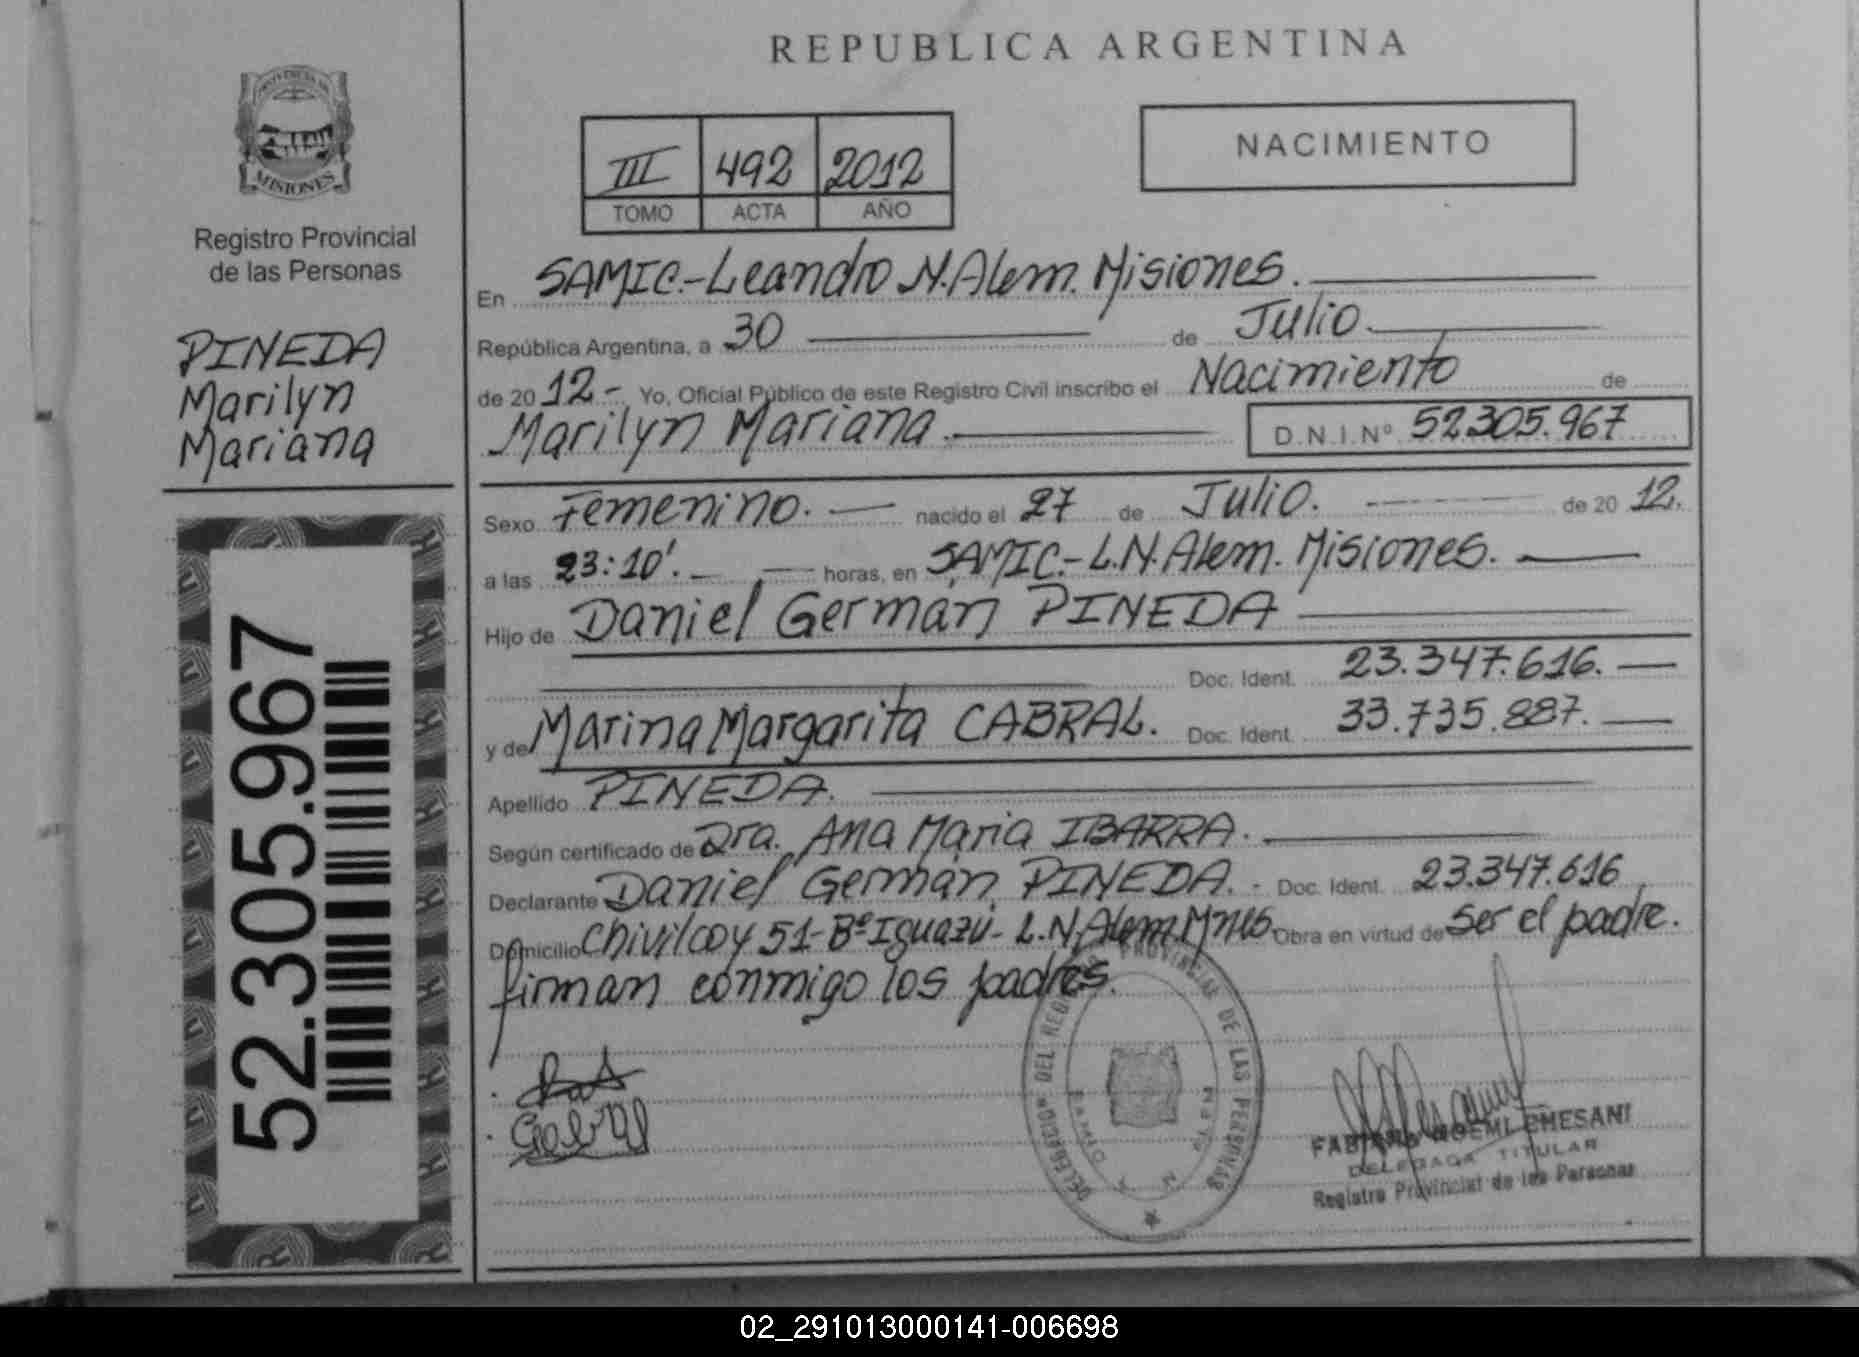 REPUBLICA ARGENTINA
PROVINCIA DE
MISIONES
Registro Provincial
de las Personas
PINEDA
Marilyn
Mariana
52.305.967
III 492 2012
TOMO ACTA AÑO
NACIMIENTO
En SAMIC.-Leandro N. Alem. Misiones.
República Argentina, a 30 de Julio.
de 2012.- Yo, Oficial Público de este Registro Civil inscribo el Nacimiento de
Marilyn Mariana. D.N.I.Nº 52.305.967
Sexo Femenino. nacido el 27 de Julio. de 2012.
a las 23:10'. horas, en SAMIC.-L.N.Alem. Misiones.
Hijo de Daniel Germán PINEDA
Doc. Ident. 23.347.616.
y de Marina Margarita CABRAL. Doc. Ident. 33.735.887.
Apellido PINEDA.
Según certificado de Dra. Ana Maria IBARRA.
Declarante Daniel Germán PINEDA. - Doc. Ident. 23.347.616
Domicilio Chivilcoy 51-Bº Iguazú- L.N.Alem Mnes. Obra en virtud de Ser el padre.
firman conmigo los padres.
DELEGACION DEL REGISTRO PROVINCIAL DE LAS PERSONAS
NOEMI CHESANI
DELEGADA TITULAR
Registro Provincial de las Personas
02_291013000141-006698